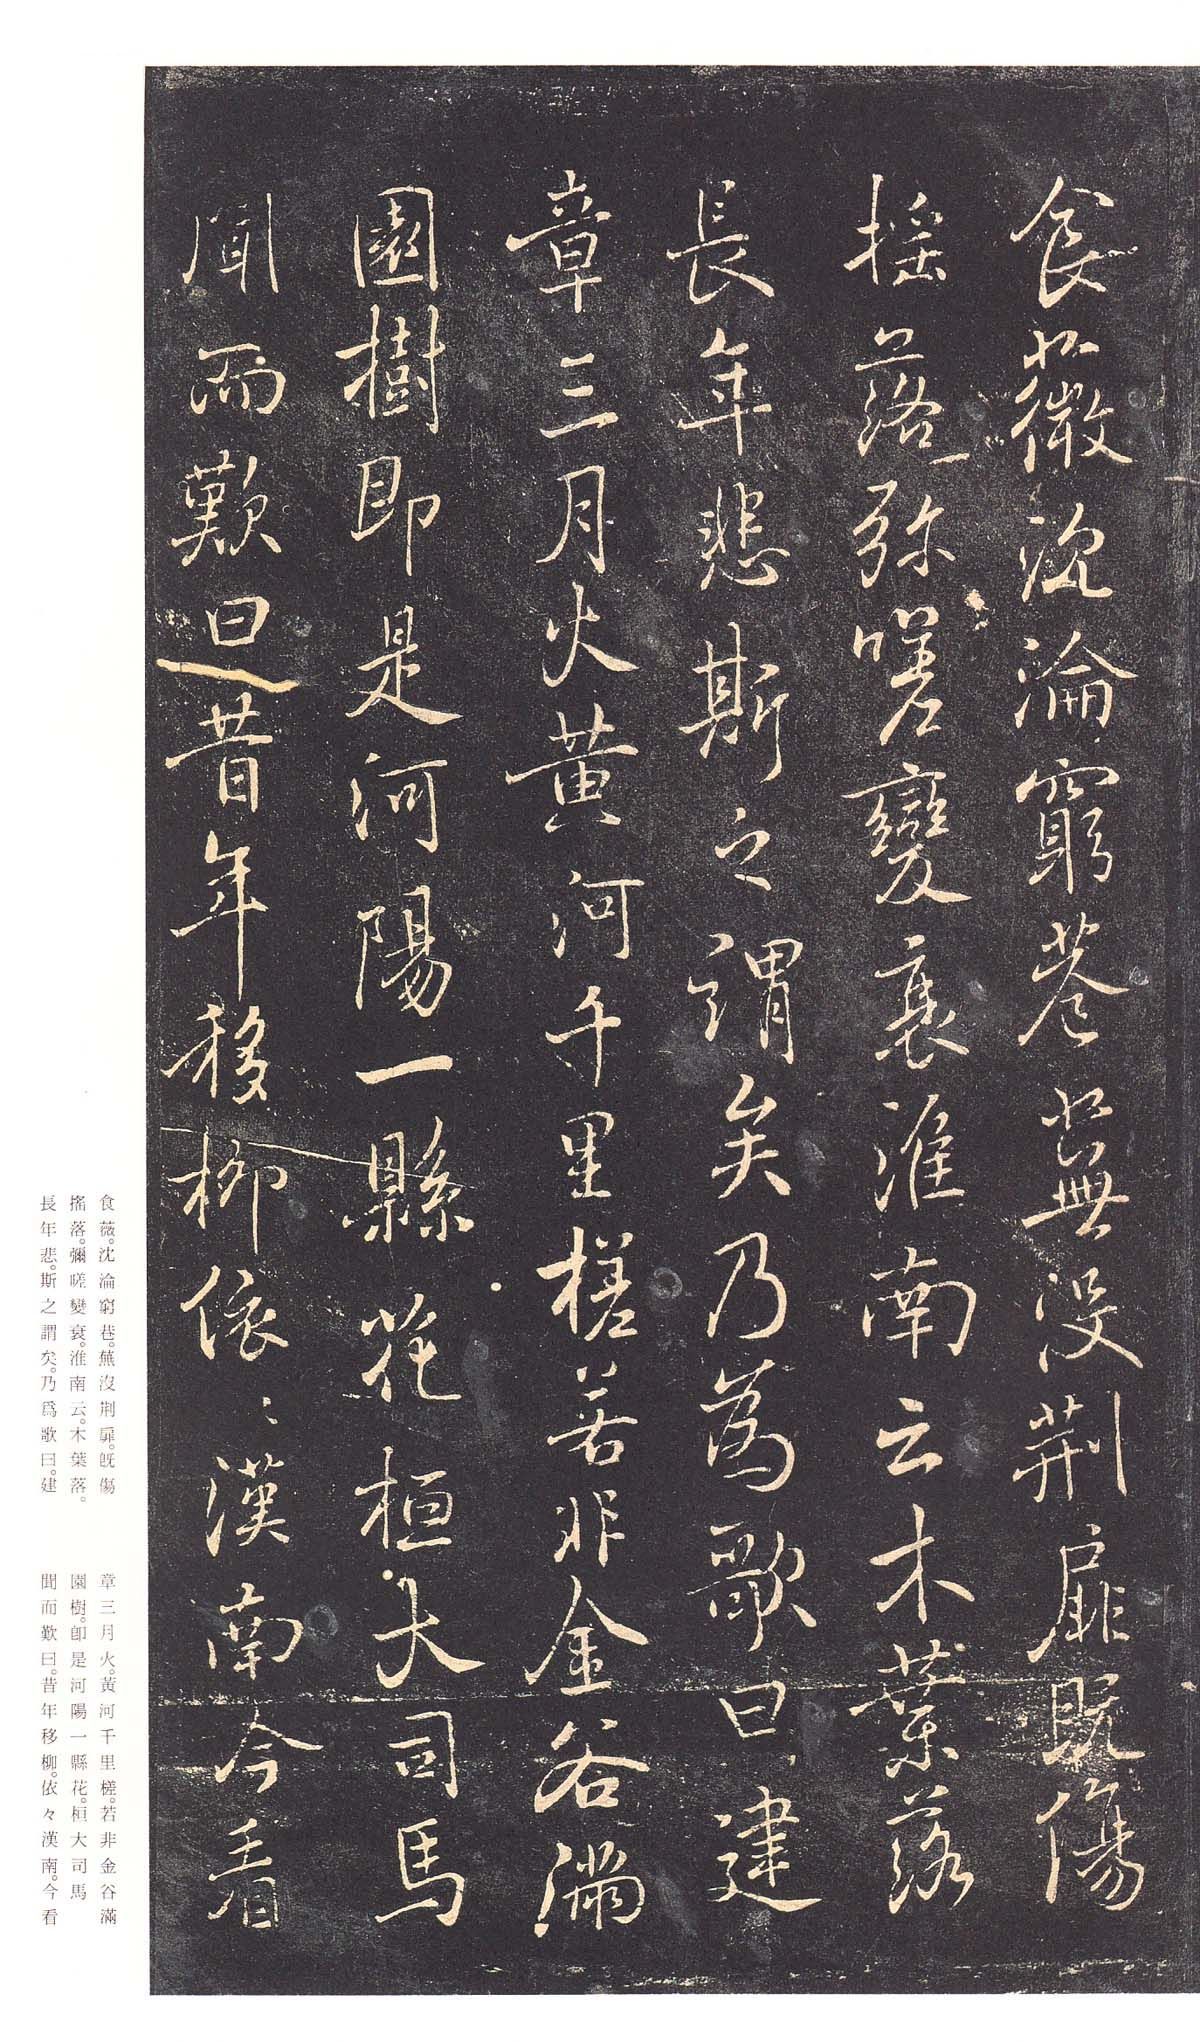 食薇沈淪窮巷蕪没荆扉既傷
摇落弥嗟變衰淮南云木葉落
長年悲斯之謂矣乃為歌曰建
章三月火黄河千里槎若非金谷滿
園樹即是河陽一縣花桓大司馬
聞而歎曰昔年移柳依〻漢南今看
食薇。沈淪窮巷。蕪沒荆扉。既傷
搖落。彌嗟變衰。淮南云。木葉落。
長年悲。斯之謂矣。乃爲歌曰。建
章三月火。黃河千里槎。若非金谷滿
園樹。卽是河陽一縣花。桓大司馬
聞而歎曰。昔年移柳。依々漢南。今看